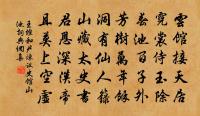 雲館接天居
霓裳侍玉除
春池百子外
芳樹萬年餘
洞有仙人籙
山藏太史書
君恩深漢帝
且莫上空虛
王維和尹諫議史館山
池詞典網集